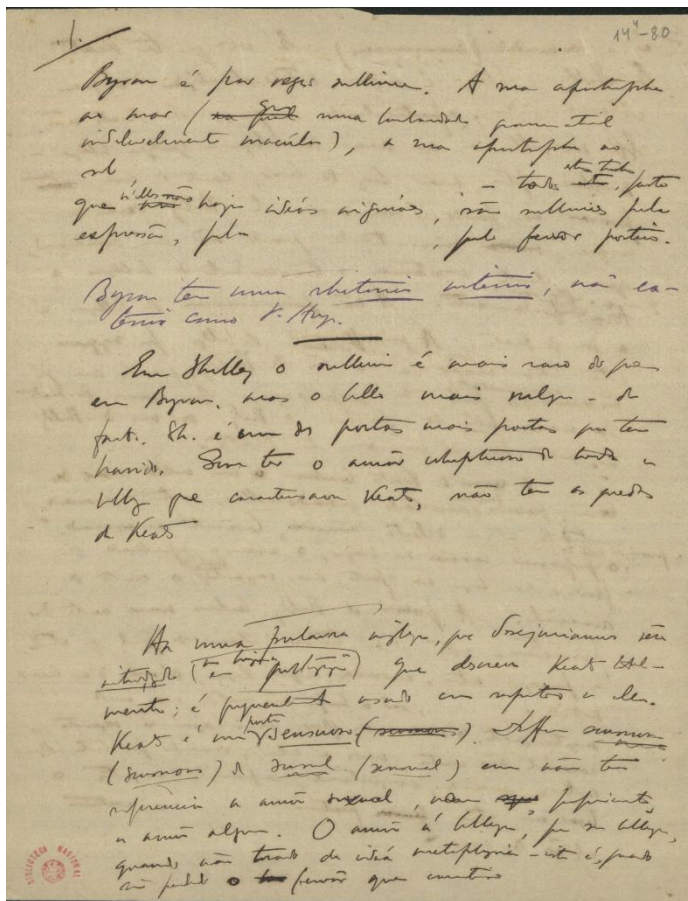 1.
14⁴-80
Byron é por vezes sublime. A sua apostrophe
ao mar (que uma gramatical
indelevelmente macúla), a sua apostrophe ao
sol — todas estas, posto
que n'ellas não haja idéas , são sublimes pela
expressão, pela , pelo fervor poetico.
Byron tem uma rhetorica interna, não ex-
terna como V. Hugo.
Em Shelley o sublime é mais raro do que
em Byron, mas o bello mais vulgar — de
facto. Sh. é um dos poetas mais poetas que tem
havido. Sem ter o amôr de toda a
belleza que caracterisava Keats, não tem as quedas
de Keats
Ha uma palavra ingleza, que desejariamos vêr
introduzida (na lingua portugueza) que descreve Keats total-
mente; é frequentemente usada com respeito a elle.
Keats é um poeta sensuoso (sensuous). Differe sensuoso
(sensuous) de sensual (sensual) em não ter
referencia a amôr sexual, nem,
a amôr algum. O amôr á belleza, por ser belleza,
quando não tocado de idéa metaphysica — isto é, quando
não perde o fervôr que
BIBLIOTECA NACIONAL